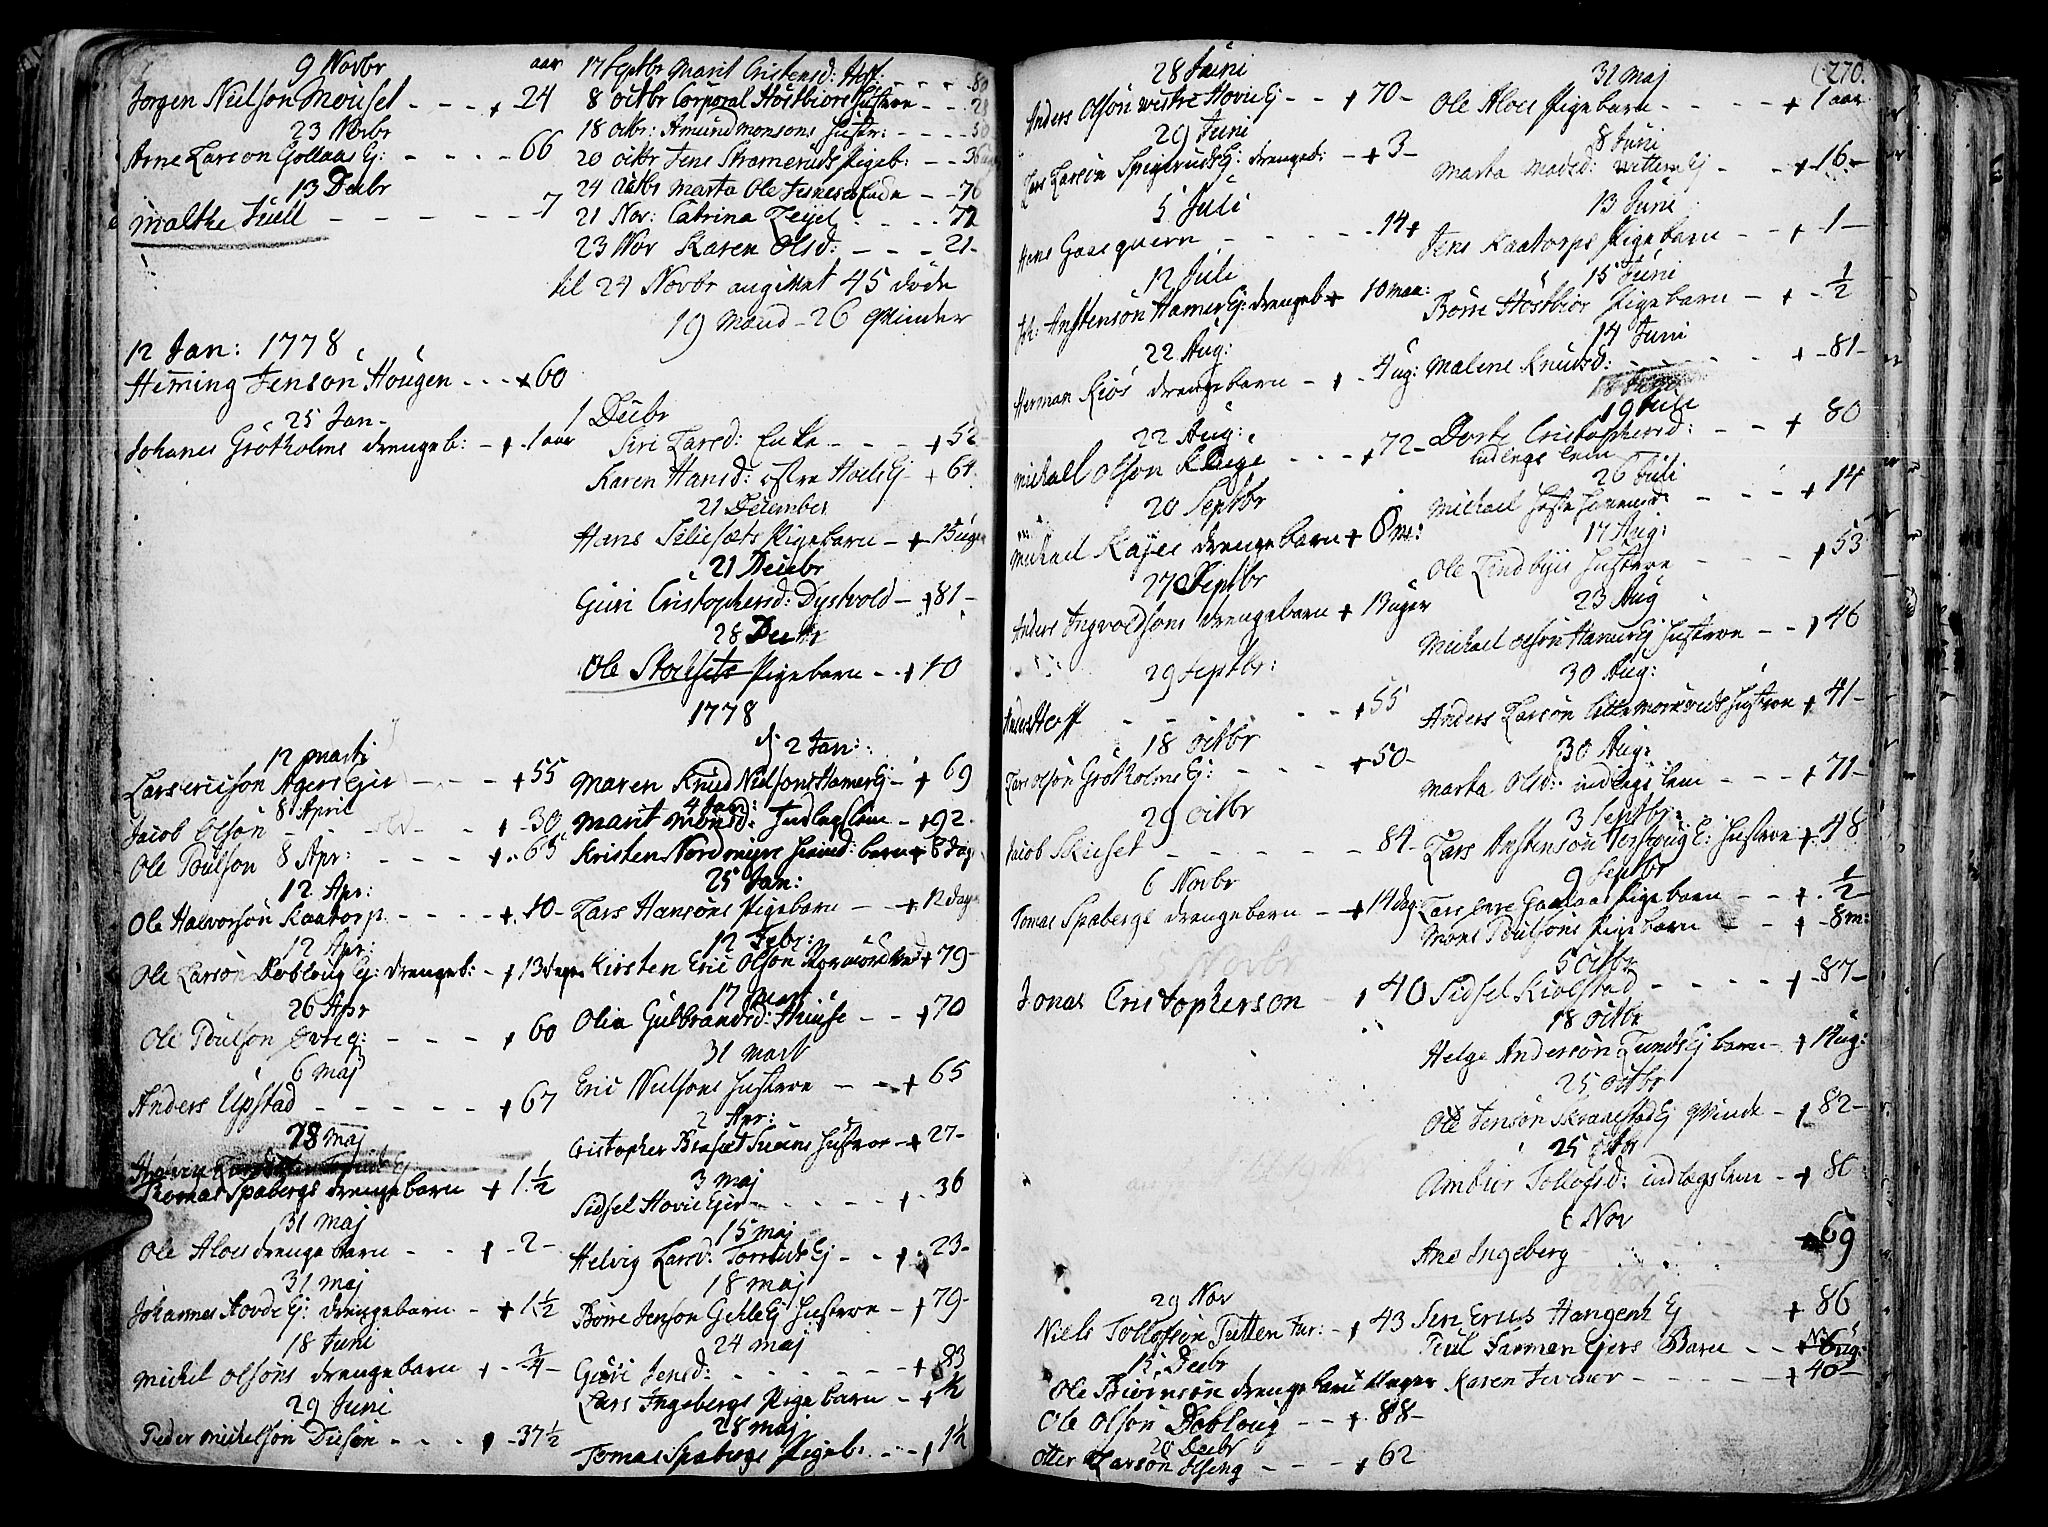 9 Novbr
aar
Jorgen Nielson Mouset - - - + 24
23 Novbr
Arne Larson Gollaas Ej: - - - - 66
13 Decbr
Malthe Juell - - - - - - 7
12 Jan: 1778
Heming Jenson Hougen - - - + 60
25 Jan-
Johanes Grotholms drengeb: - + - 1 aar
12 marti
Lars ericson Agers Eier - - - + 55
8 April
Jacob Olson - - - + - 30
Ole Poulson 8 Apr: - - - - + - 65
12 Apr:
Ole Halvorson Kaatorp - - - - + 40 -
12 Apr:
Ole Larson Doblong Ej: drengeb: - + 13 dage
26 Apr
Ole Poulson - - - + 60
6 Maj
Anders Upstad - - - - - + 67
28 Maj
Thomas Spabergs drengebarn + 1 ½
31 Maj
Ole Aloes drengebarn - - + - 2 -
31 Maj
Johannes Hovde Ej: drengebarn - + 1 ½
18 Juni
Michel Olsons drengebarn + - ¾ -
29 Juni
Peder Michelson Dieson - - - + - 37 ½
17 Septbr Marit Cristensd: Hoff: - - - - 80
8 Octbr Corporal Hostbiors Hustroe - - 28
18 Octbr: Amund Monsons Hustr: - - - - 50
20 Octbr Jens Strameruds Pigeb: - - 36
24 Octbr Marta Ole Enke - - 76
21 Nov: Catrina Zeyel - - - - 72
23 Nov Karen Olsd: - - - - 21 -
til 24 Novbr angivet 45 døde
19 Mænd - 26 Qvinder
1 Decbr
Siri Larsd: Enke - - - + 52 -
Karen Hansd: ostre Hoels Ej - + 64
21 December
Hans Seliesæts Pigebarn - + - 15 uger
21 Decbr
Guri Cristophersd: Dystvold - + 81 -
28 Decbr
Ole Stoelsets Pigebarn - - + 10
1778
d: 2 Jan:
Maren Knud Nielsons Hamer Ej - + 69
4 Jan:
Marit Monsd: Indlagslem - + 92 -
Kristen Nordmyre barn + 8 dage
25 Jan:
Lars Hansons Pigebarn - - + 12 dage
12 Febr:
Kirsten Eric Olson + 79 -
17 Mart
Olia Gulbrandsd: - - + 70
31 Mart
Eric Nielsons Hustroe - - + 65
2 Apr:
Cristopher Hustroe - + 27 -
3 Maj
Sidsel Hovie Ejer - - - - - + - 36
15 Maj
Helvig Larsd: Torruds Ej - - + - 23 -
18 Maj
Borre Jenson Gehle Ej Hustroe - + 79 -
24 Maj
Guri Jensd: - - - - - - + 83
Lars Ingebergs Pigebarn - + ½
28 Maj
Tomas Spabergs Pigeb: - - + 1 ½
270.
28 Juni
Anders Olson vestre Hovie Ej - - + 70 -
29 Juni
Lars Larson Ej: drengeb: - + 3 -
5 Juli
Hans Gaasquern - - - - - - 14 +
12 Juli
Joh: Anstenson Hamer Ej: drengeb + 10 maa:
22 Aug:
Herman Kios drengebarn - + - 4 ug:
22 Aug:
Michall Olson Kluge - - - + 72 -
20 Septbr
Michael Kajes drengebarn + 6 m:
27 Septbr
Anders Ingvoldsons drengebarn + 13 uger
29 Septbr:
Anders Hoff - - - - - + 55
18 Octbr
Lars Olson Grotholms Ej: - - - - + 50 -
29 Octbr
Jacob Skuset - - - - - - 84 -
6 Novbr
Tomas Spabergs drengebarn - - + 14 dag:
Jonas Cristopherson - + 40
29 Nov
Niels Tollofson Tutten - + 43
13 Decbr
Ole Biornson drengebarn + uger
Ole Olson Doblong - - + 88 -
20 Decbr
Otter Larson - - - + 62
31 Maj
Ole Aloes Pigebarn - - - - - + 1 aar
8 Juni
Marta Madsd: Wittem Ej - - + 16 -
13 Juni
Jens Kaatorps Pigebarn - - + - 1 -
15 Juni
Borre Hostbior Pigebarn - + - ½
14 Juni
Malene Knudsd: - - - - + - 81 -
19 Juli
Dorte Cristophersd: - - + 80
indlegslem
26 Juli
Michael - - - + 14
17 Aug:
Ole Lindbyes Hustroe - - - + 53
23 Aug
Michael Olson Hamer Ej Hustroe - - + 46
30 Aug:
Anders Larson Hustroe + 41 -
30 Aug:
Marta Olsd: indlegslem - - - + 71 -
3 Septbr:
Lars Anstenson Ej: Hustroe + 48
9 Septbr
Lars Gaalaas Pigebarn - - + - ½ -
Mons Poulsons Pigebarn - - + - 8 m:
5 Octbr
Sidsel Kiolstad - - - - + - 87 -
18 Octbr
Helge Anderson Lunds Ej barn - + 14 ug:
25 Octbr
Ole Jenson Skraastad Ej Qvinde - + 82 -
25 Octbr
Ambior Tollofsd: indlegslem - + 80
6 Nov
Ane Ingeberg - - - - - + 69
Siri Erics Hangenh Ej + 86
Poul Farman Ejers Barn - - + 6 ug:
Karen - - - - - + 40 -